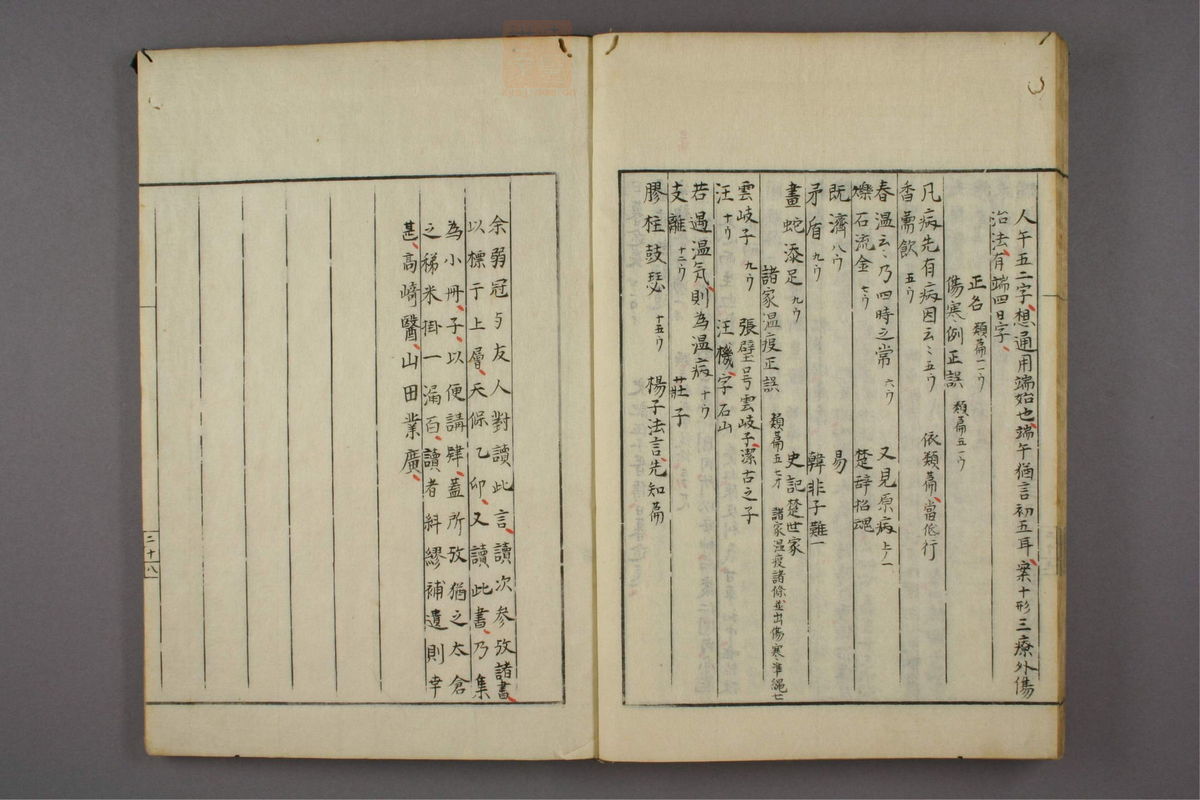 人午五二字想通用端始也端午猶言初五耳案十形三療外傷
治法有端四日字
正名 類篇二ウ
傷寒例正誤 類篇五一ウ
凡病先有病因云〻五ウ 依類篇當低一行
香薷飲 五ウ
春温云〻乃四時之常 六ウ 又見原病上ノ一
爍石流金 七ウ 楚辞招魂
既濟 八ウ 易
矛盾 九ウ 韓非子難一
畫蛇添足 九ウ 史記楚世家
諸家温疫正誤 類篇五七オ 諸家温疫諸條並出傷寒準繩七
雲岐子 九ウ 張璧号雲岐子潔古之子
汪 十ウ 汪機字石山
若遇温気則為温病 十ウ
支離 十二ウ 莊子
膠柱鼓瑟 十五ウ 楊子法言先知篇
余弱冠与友人對讀此言讀次参攷諸書
以標于上層天保乙卯又讀此書乃集
為小冊子以便講肄蓋所攷猶之太倉
之稊米掛一漏百讀者糾繆補遺則幸
甚高﨑醫山田業廣
二十八